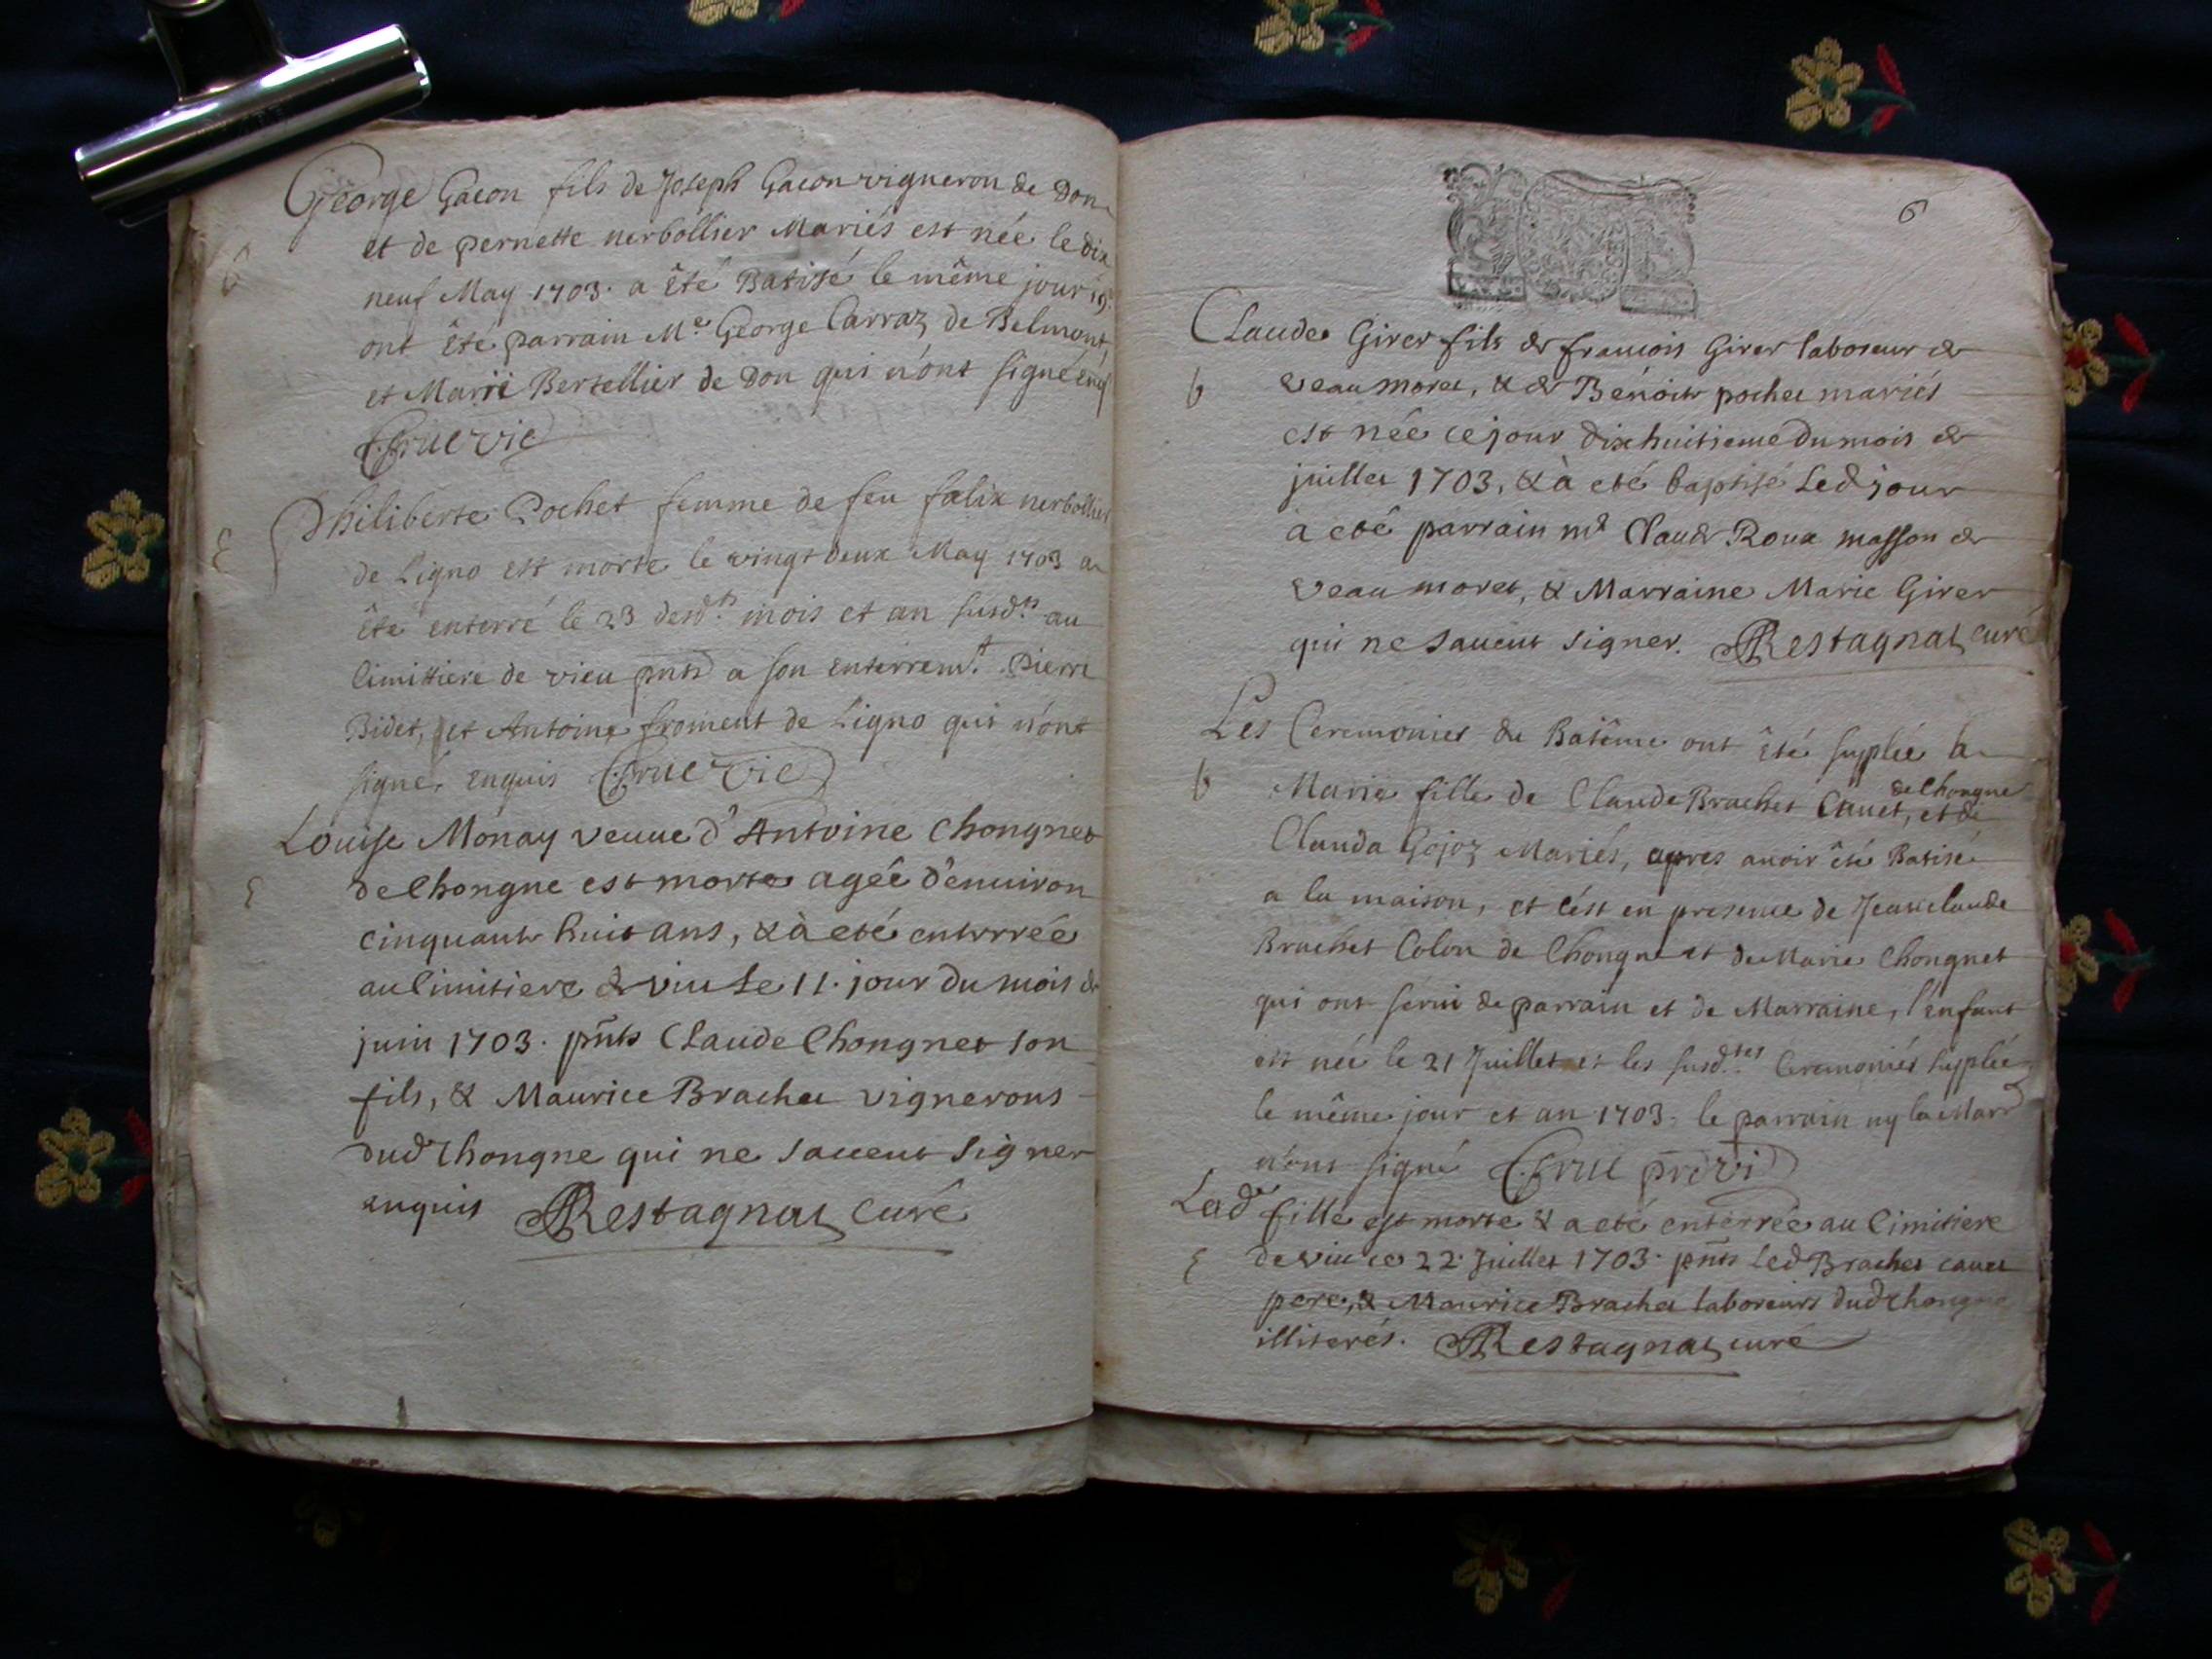 George Gacon fils de Joseph Gacon vigneron de Don
et de pernette nerbollier Mariés est née le dix
b
neuf May 1703. a êté Batisé le même jour 19.
ont êté parrain Me George Carraz de Belmont,
et Marie Bertellier de Don qui n'ont signé enqs
Cruevie
Philiberte Pochet femme de feu falix nerbollier
E
de Ligno est morte le vingt deux May 1703 a
êté enterré le 23 desdts mois et an susdts au
Cimittiere de vieu pnts a son enterremt. Pierre
Bidet, et Antoine froment de Ligno qui n'ont
signé, enquis Cruevie
Louise Monay veuue d'Antoine Chongnet
E
de Chongne est morte agée d'enuiron
cinquante huit ans, & à eté enterrée
au Cimitiere de viu Le 11. jour du mois de
juin 1703. pnts Claude Chongnet son
fils, & Maurice Brachet vignerons
dud Chongne qui ne sauent signer
enquis Restagnat curé
6
Claude Girer fils de francois Girer laboreur de
b
veaumoret, & de Benoite pochet mariés
est née ce jour dixhuitieme du mois de
juillet 1703, & à eté baptisé Led jour
a eté parrain md Claude Roux masson de
veaumoret, & Marraine Marie Girer
qui ne sauent signer. Restagnat curé
Les Ceremonies du Batême ont êté suplée a
de Chongne
b
Marie fille de Claude Brachet Cauet, et de
Clauda Gojoz Mariés, apres auoir êté Batisé
a la maison, et c'est en presence de Jeanclaude
Brachet Colon de Chongne et de Marie Chongnet
qui ont serui de parrain et de Marraine, l'enfant
est née le 21 Juillet et les susdtes Ceremoniés suplée
le même jour et an 1703. le parrain ny la Marr
n'ont signé Crue provi
Lade fille est morte & a eté enterrée au Cimitiere
E
de viu ce 22. Juillet 1703. pnts Led Brachet cauet
pere, & Maurice Brachet laboreurs dud Chongne
illiterés. Restagnat curé